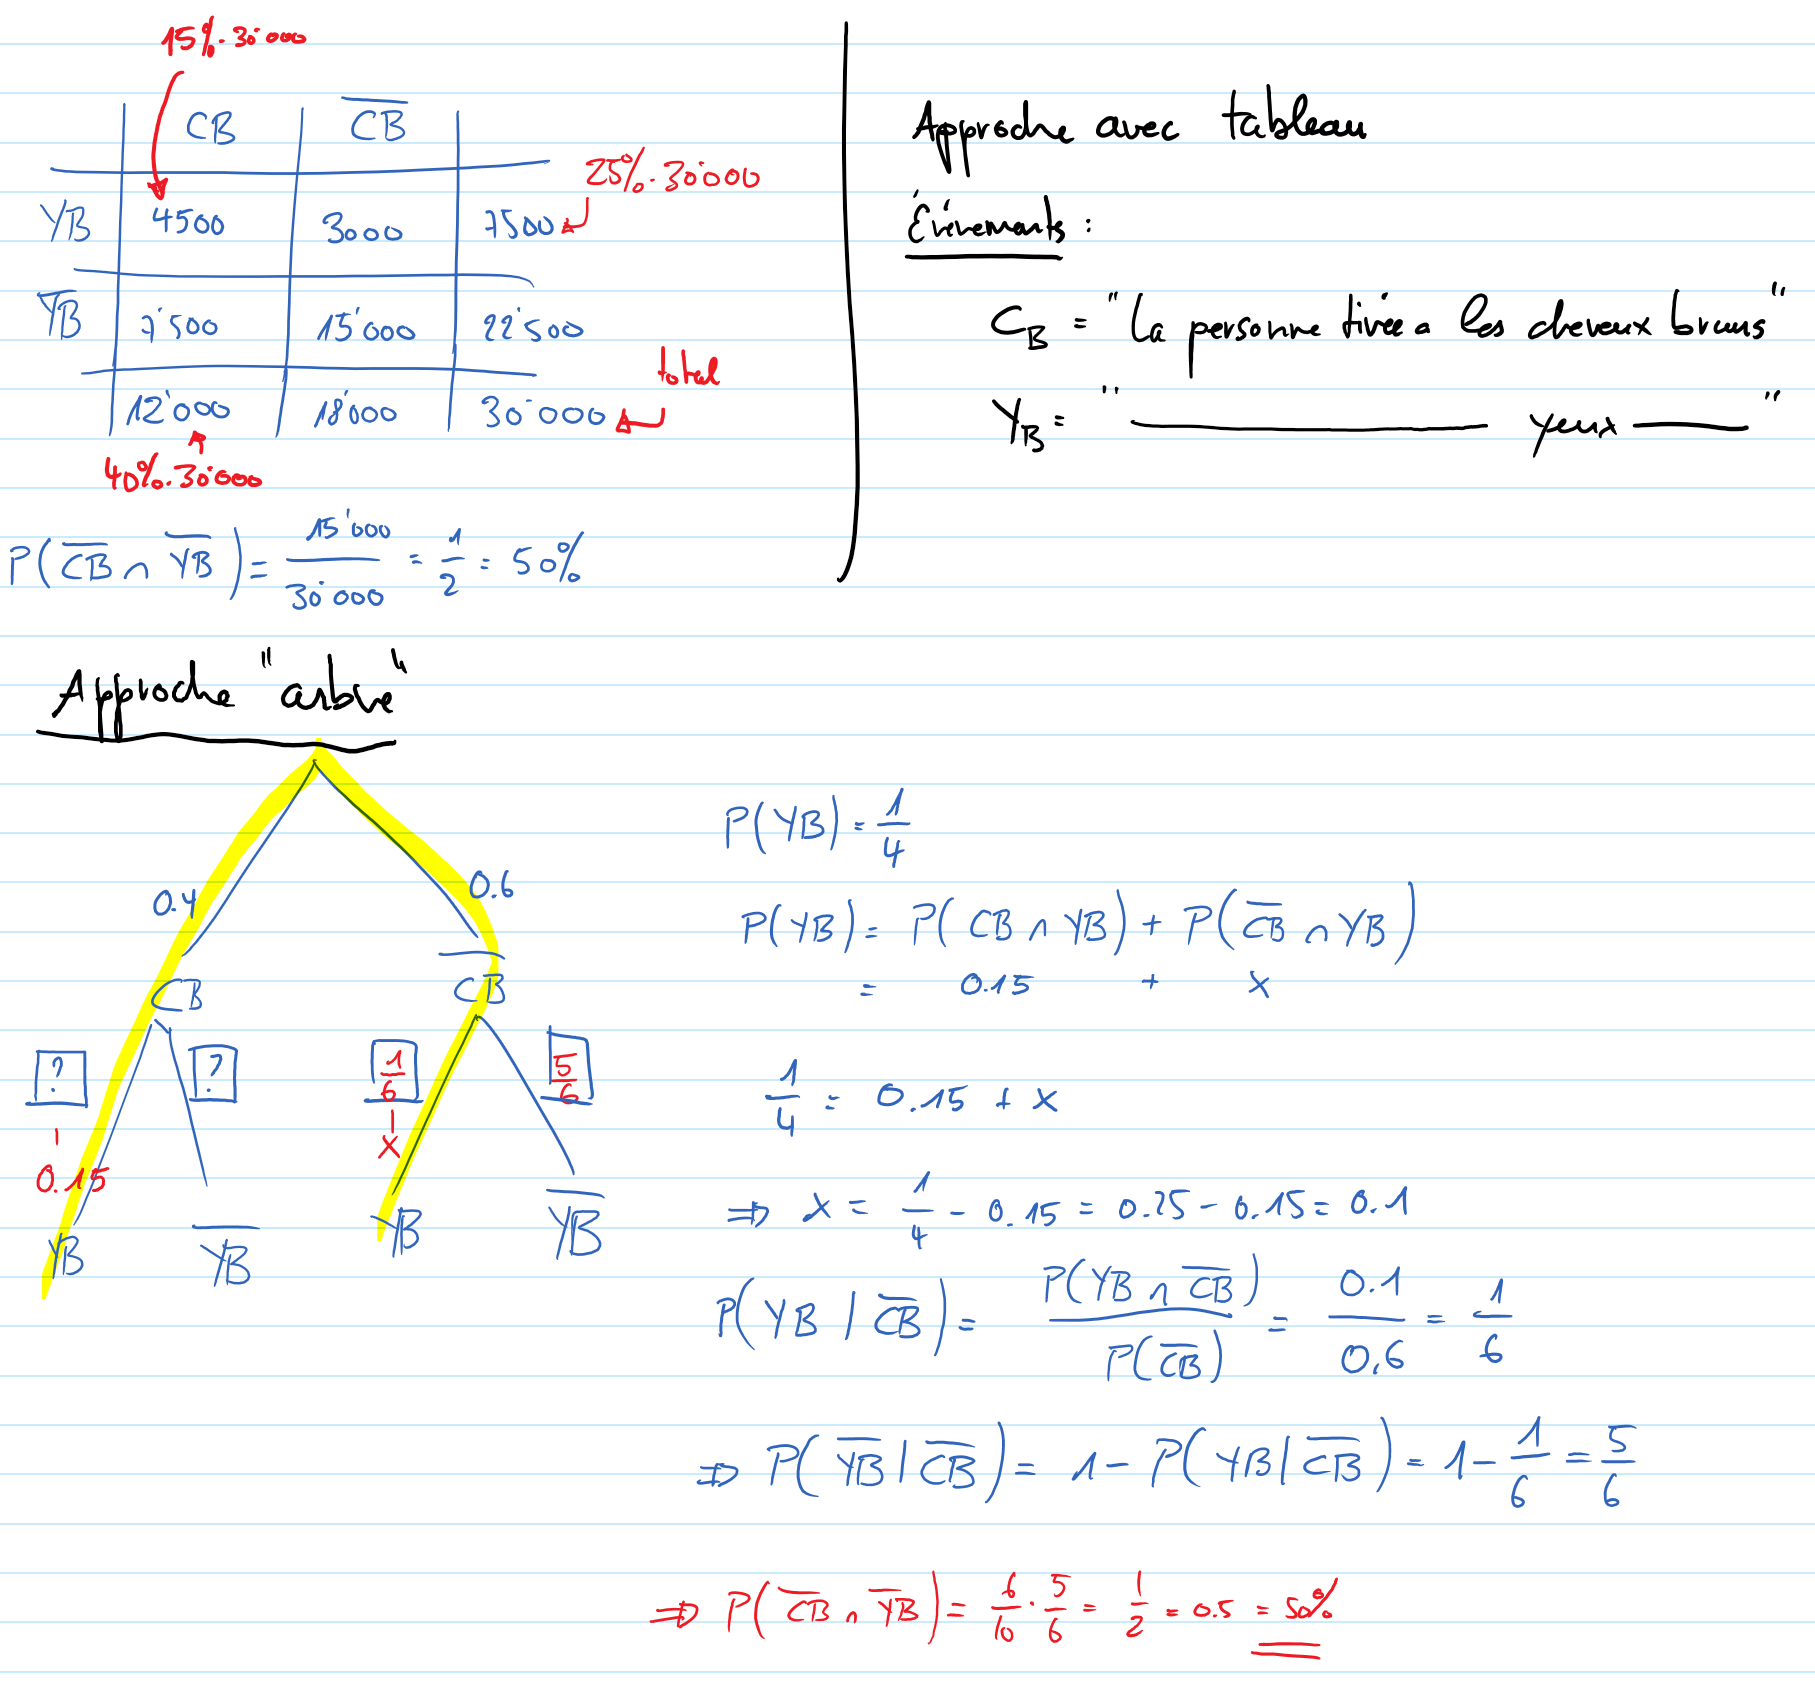 15%·30'000
CB | C̅B̅
25%·30'000
YB | 4500 | 3000 | 7500
Y̅B̅ | 7'500 | 15'000 | 22'500
total
12'000 | 18'000 | 30'000
40%·30'000
P(C̅B̅ ∩ Y̅B̅) = 15'000 / 30'000 = 1/2 = 50%
Approche avec tableau
Événements :
C_B = "La personne tirée a les cheveux bruns"
Y_B = " yeux "
Approche "arbre"
0.4 0.6
CB C̅B̅
? ? 1/6 5/6
0.15 x
YB Y̅B̅ YB Y̅B̅
P(YB) = 1/4
P(YB) = P(CB ∩ YB) + P(C̅B̅ ∩ YB)
= 0.15 + x
1/4 = 0.15 + x
⇒ x = 1/4 - 0.15 = 0.25 - 0.15 = 0.1
P(YB | C̅B̅) = P(YB ∩ C̅B̅) / P(C̅B̅) = 0.1 / 0.6 = 1/6
⇒ P(Y̅B̅ | C̅B̅) = 1 - P(YB | C̅B̅) = 1 - 1/6 = 5/6
⇒ P(C̅B̅ ∩ Y̅B̅) = 6/10 · 5/6 = 1/2 = 0.5 = 50%